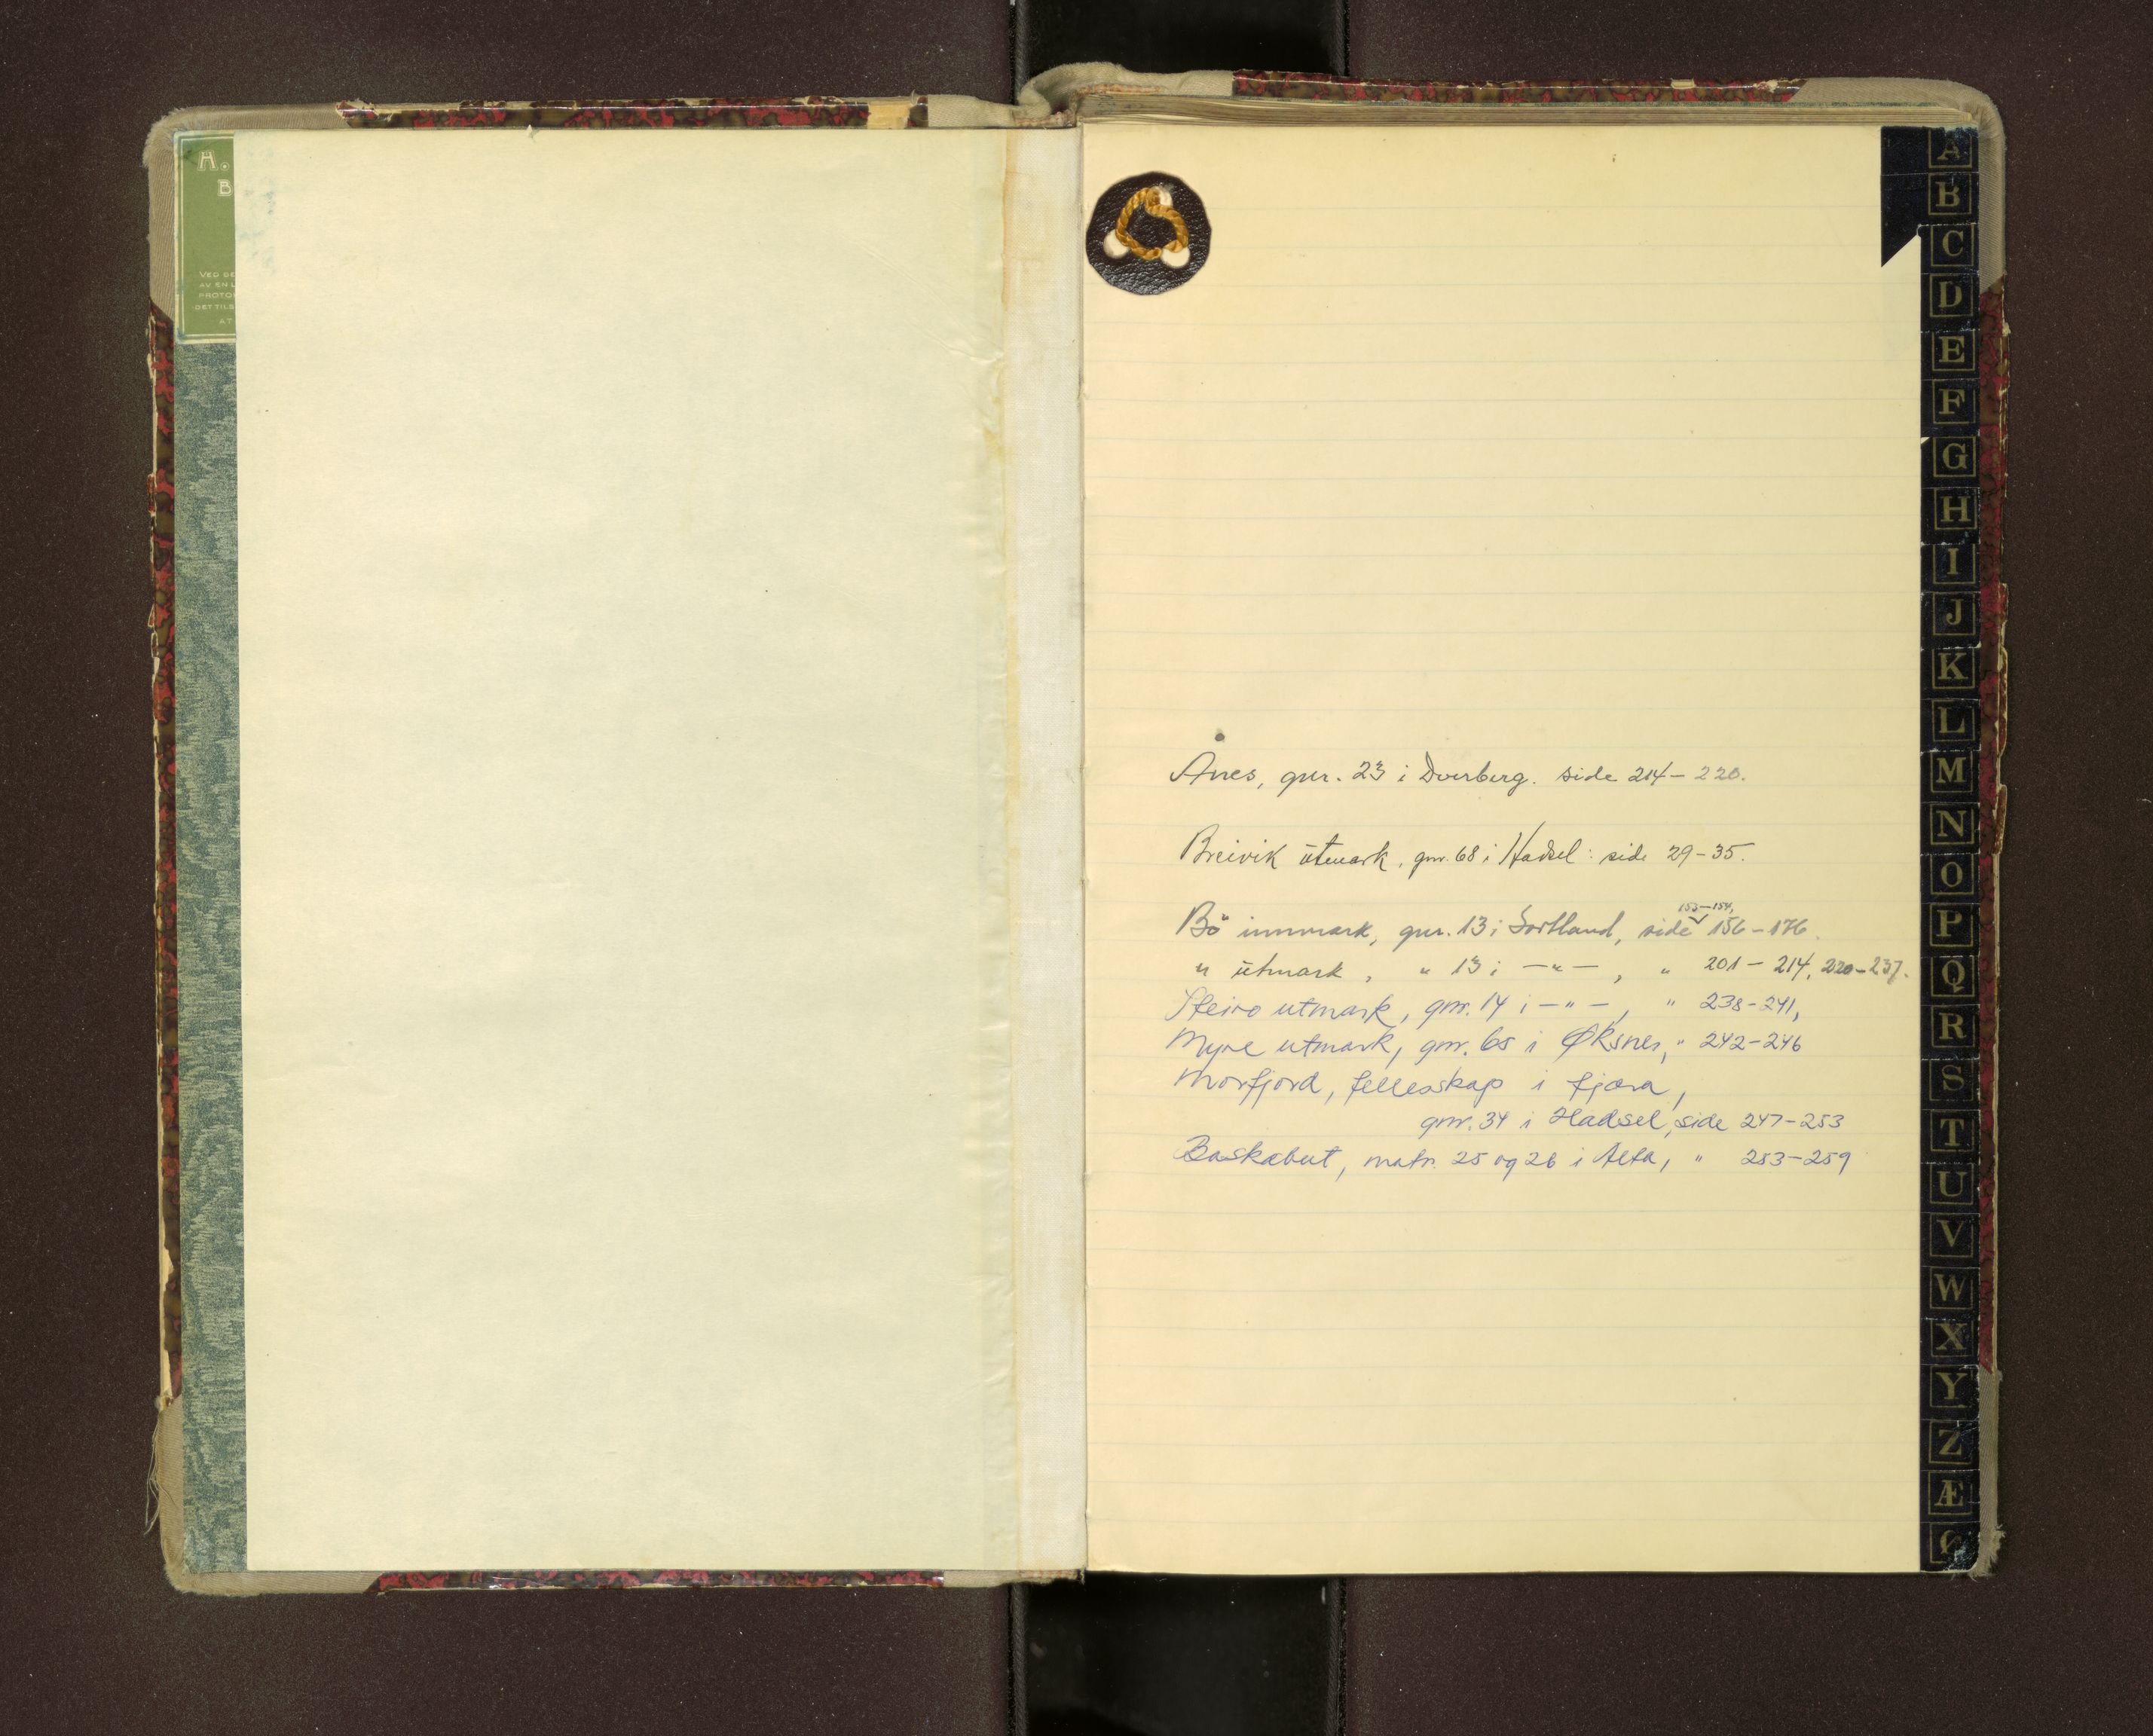 A.
B
VED DE
AV EN L
PROTO
DET TILS
AT
Ånes, gnr. 23 i Dverberg. side 214-220.
Breivik utmark, gnr. 68 i Hadsel: side 29-35.
153-154,
Bö innmark, gnr. 13 i Sortland, side 156-176.
" utmark, " 13 i -"-, " 201-214, 220-237.
Steiro utmark, gnr. 14 i -"-, " 238-241,
Myre utmark, gnr. 65 i Øksnes, " 242-246
Morfjord, fellesskap i fjæra,
gnr. 34 i Hadsel, side 247-253
Baskabut, matr. 25 og 26 i Alta, " 253-259
A
B
C
D
E
F
G
H
I
J
K
L
M
N
O
P
Q
R
S
T
U
V
W
X
Y
Z
Æ
Ø